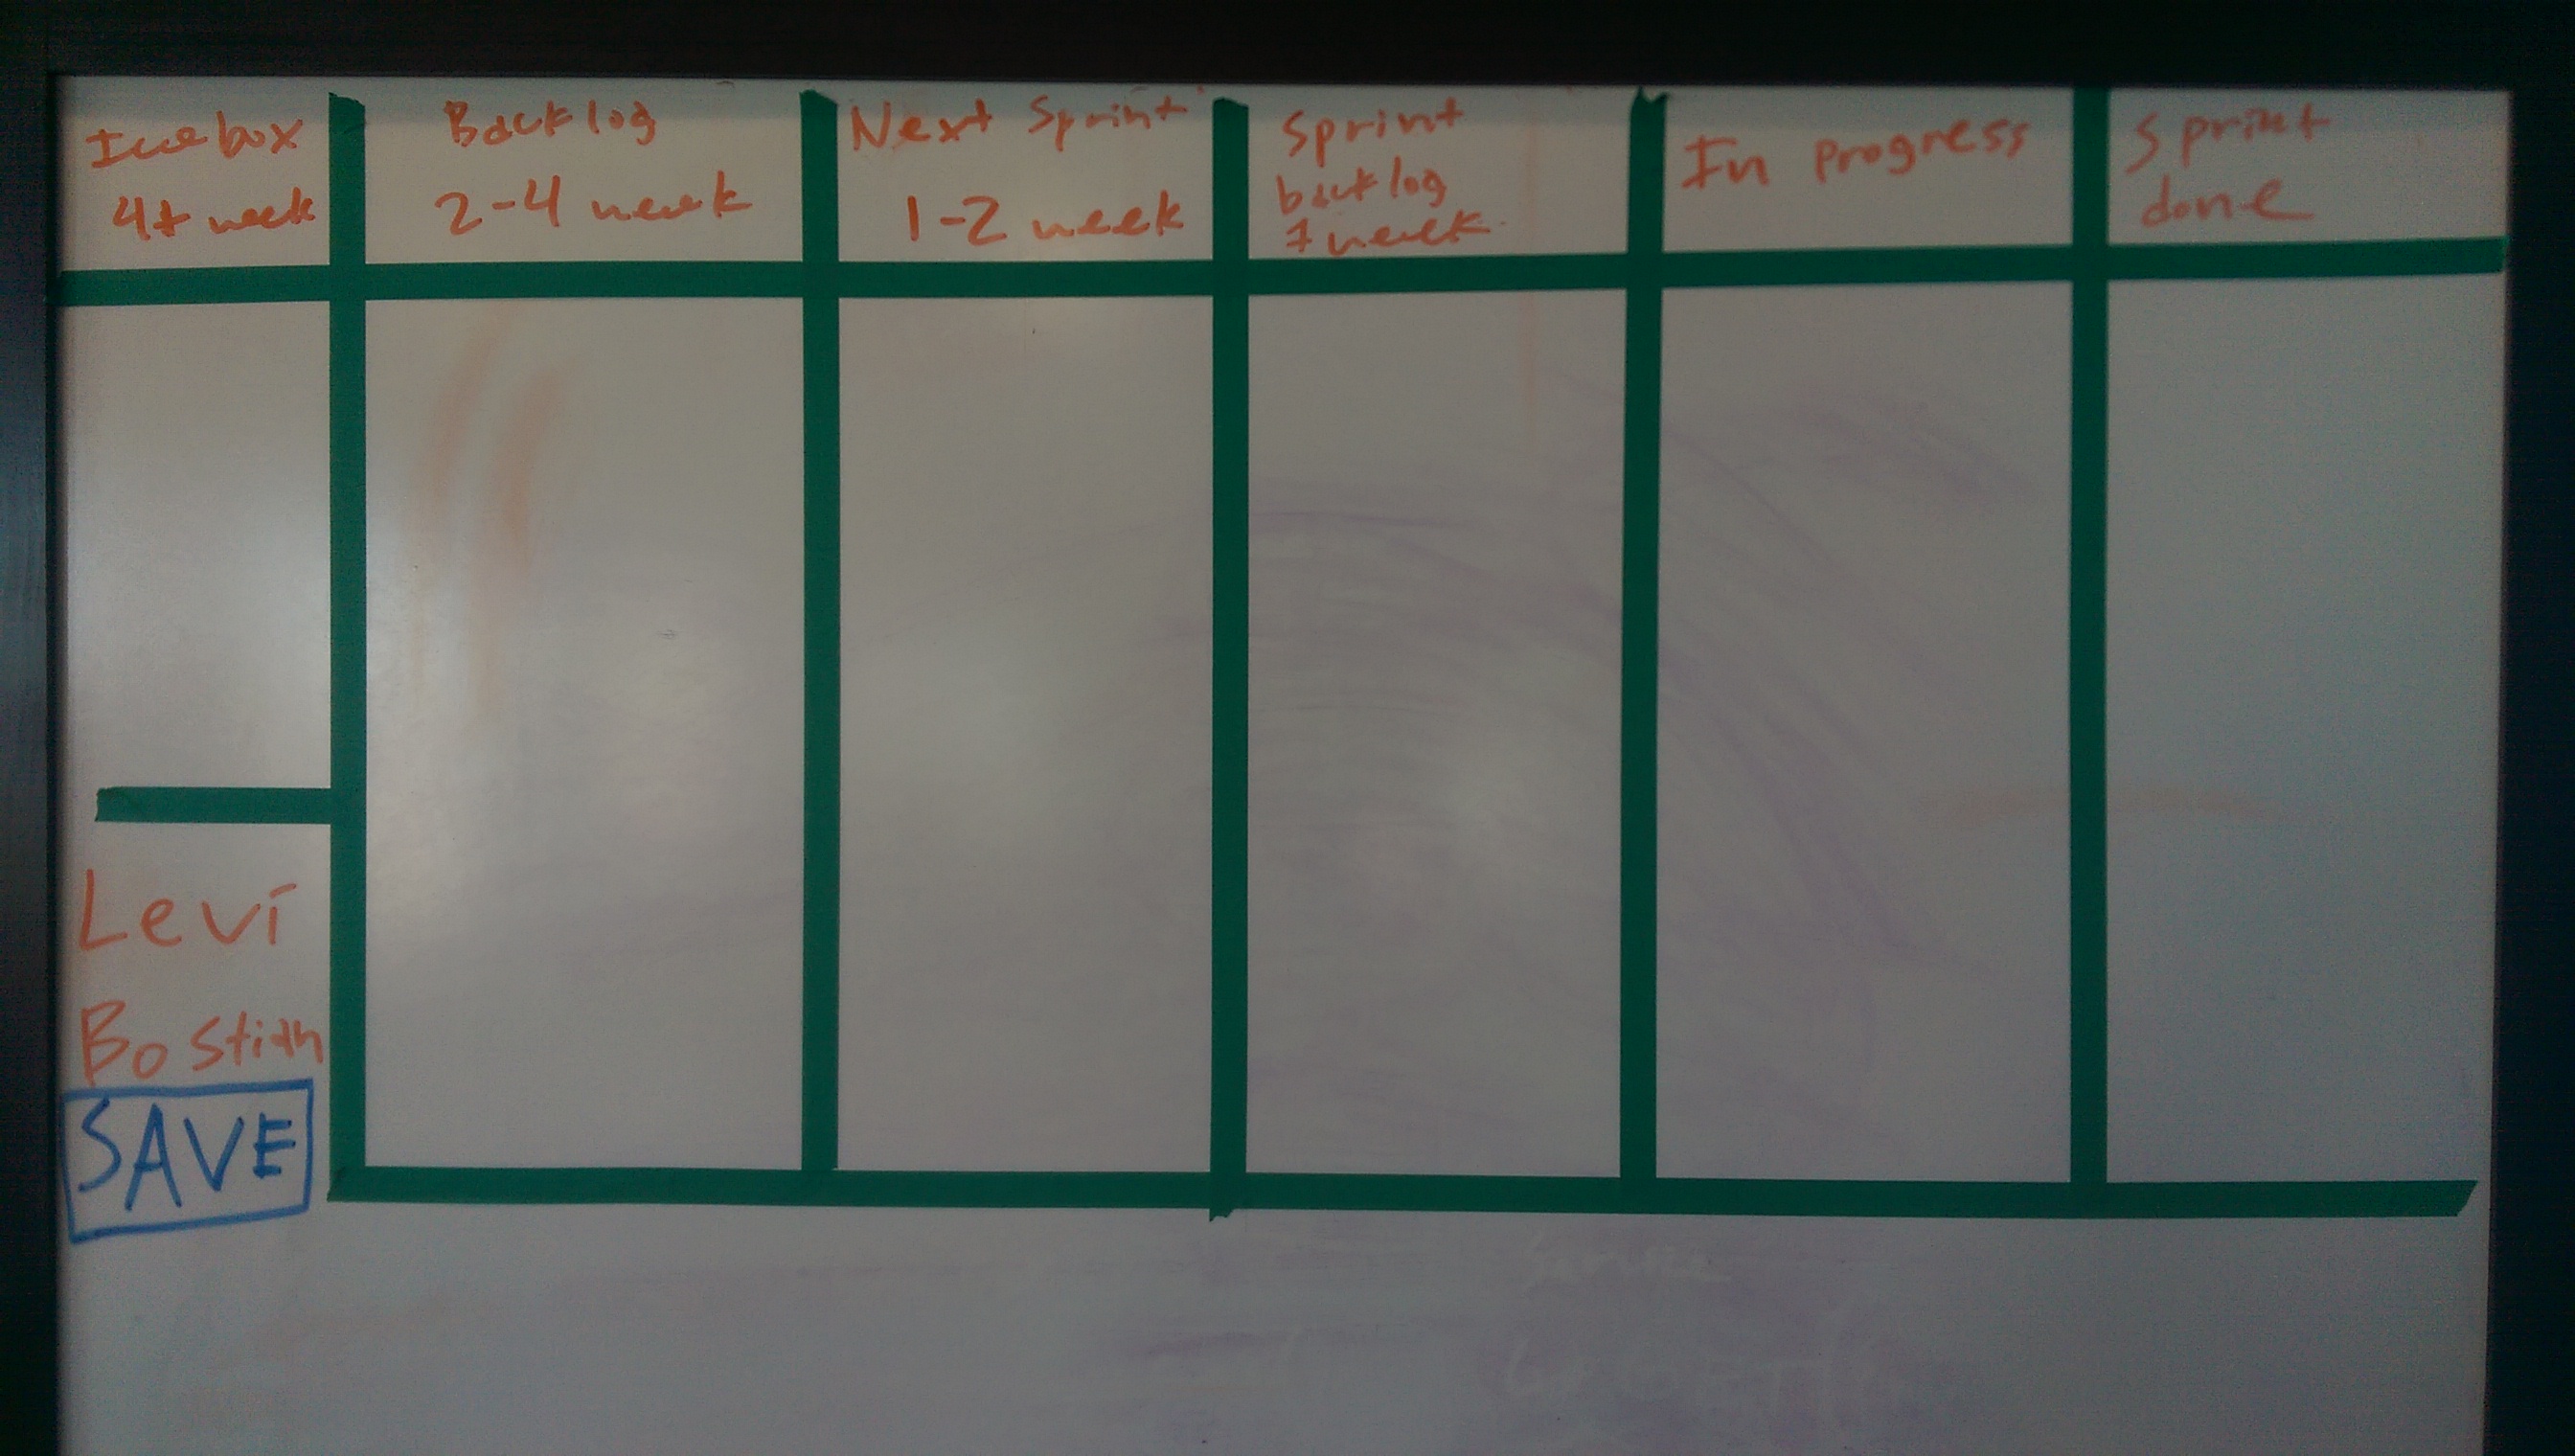 Icebox
4+ week
Backlog
2-4 week
Next Sprint
1-2 week
Sprint
backlog
1 week
In progress
Sprint
done
Levi
SAVE